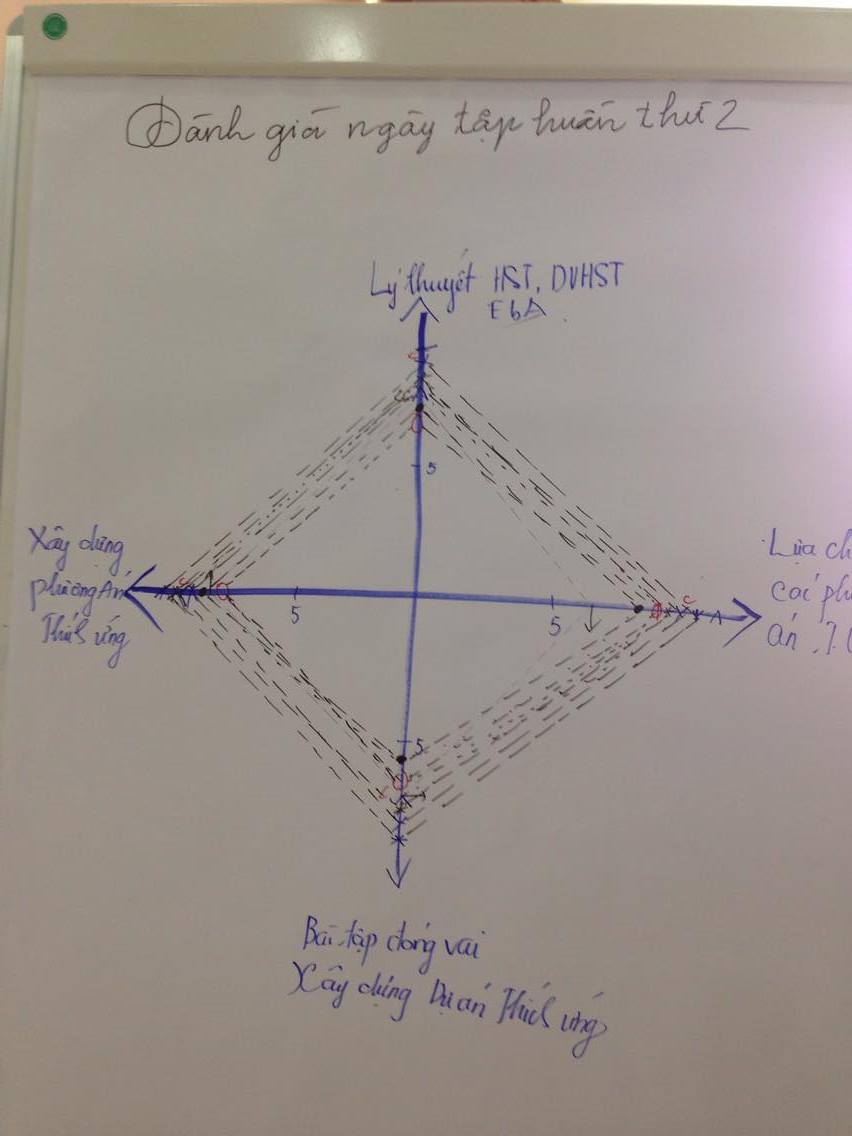 Đánh giá ngày tập huấn thứ 2
Lý thuyết HST, DVHST
EbA
5
Xây dựng
phương Án
Thích ứng
5
5
Lựa ch
các ph
án
5
Bài tập đóng vai
Xây dựng Dự án Thích ứng